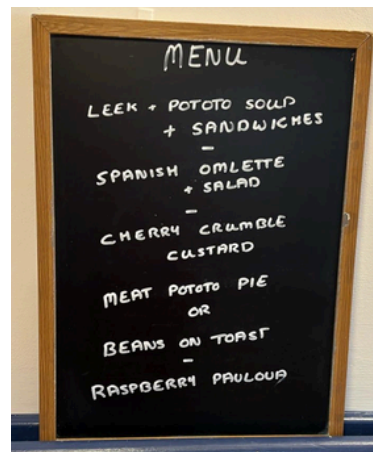 MENU
LEEK + POTOTO SOUP
+ SANDWICHES
-
SPANISH OMLETTE
+ SALAD
-
CHERRY CRUMBLE
CUSTARD
MEAT POTOTO PIE
OR
BEANS ON TOAST
-
RASPBERRY PAULOUA